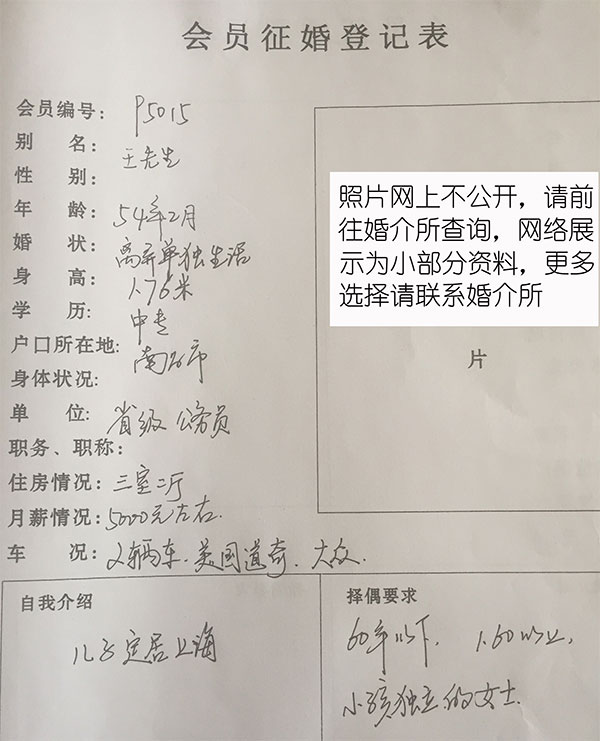 会员征婚登记表
会员编号: P5015
别 名: 王先生
性 别:
年 龄: 54年2月
婚 状: 离异单独生活
身 高: 1.76米
学 历: 中专
户口所在地: 南 市
身体状况:
单 位: 省级公务员
职务、职称:
住房情况: 三室二厅
月薪情况: 5000元左右.
车 况: 2辆车.美国道奇.大众.
照片网上不公开，请前
往婚介所查询，网络展
示为小部分资料，更多
选择请联系婚介所
片
自我介绍
儿子定居上海
择偶要求
60年以下. 1.60以上.
小孩独立的女士.